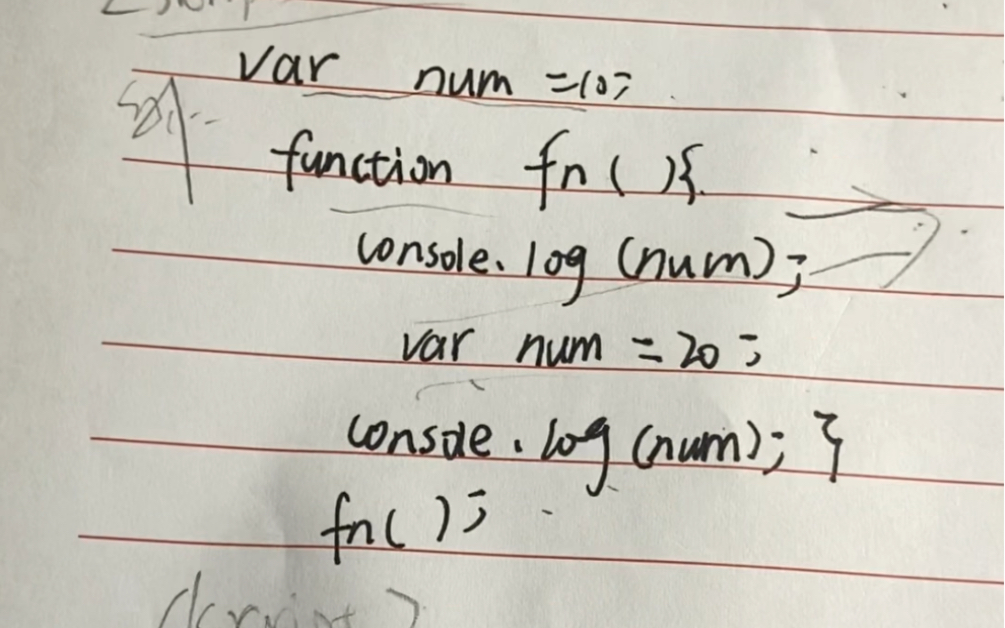 var num =10;
例
function fn ( ){
console.log (num);
var num = 20;
console.log (num); }
fn( );